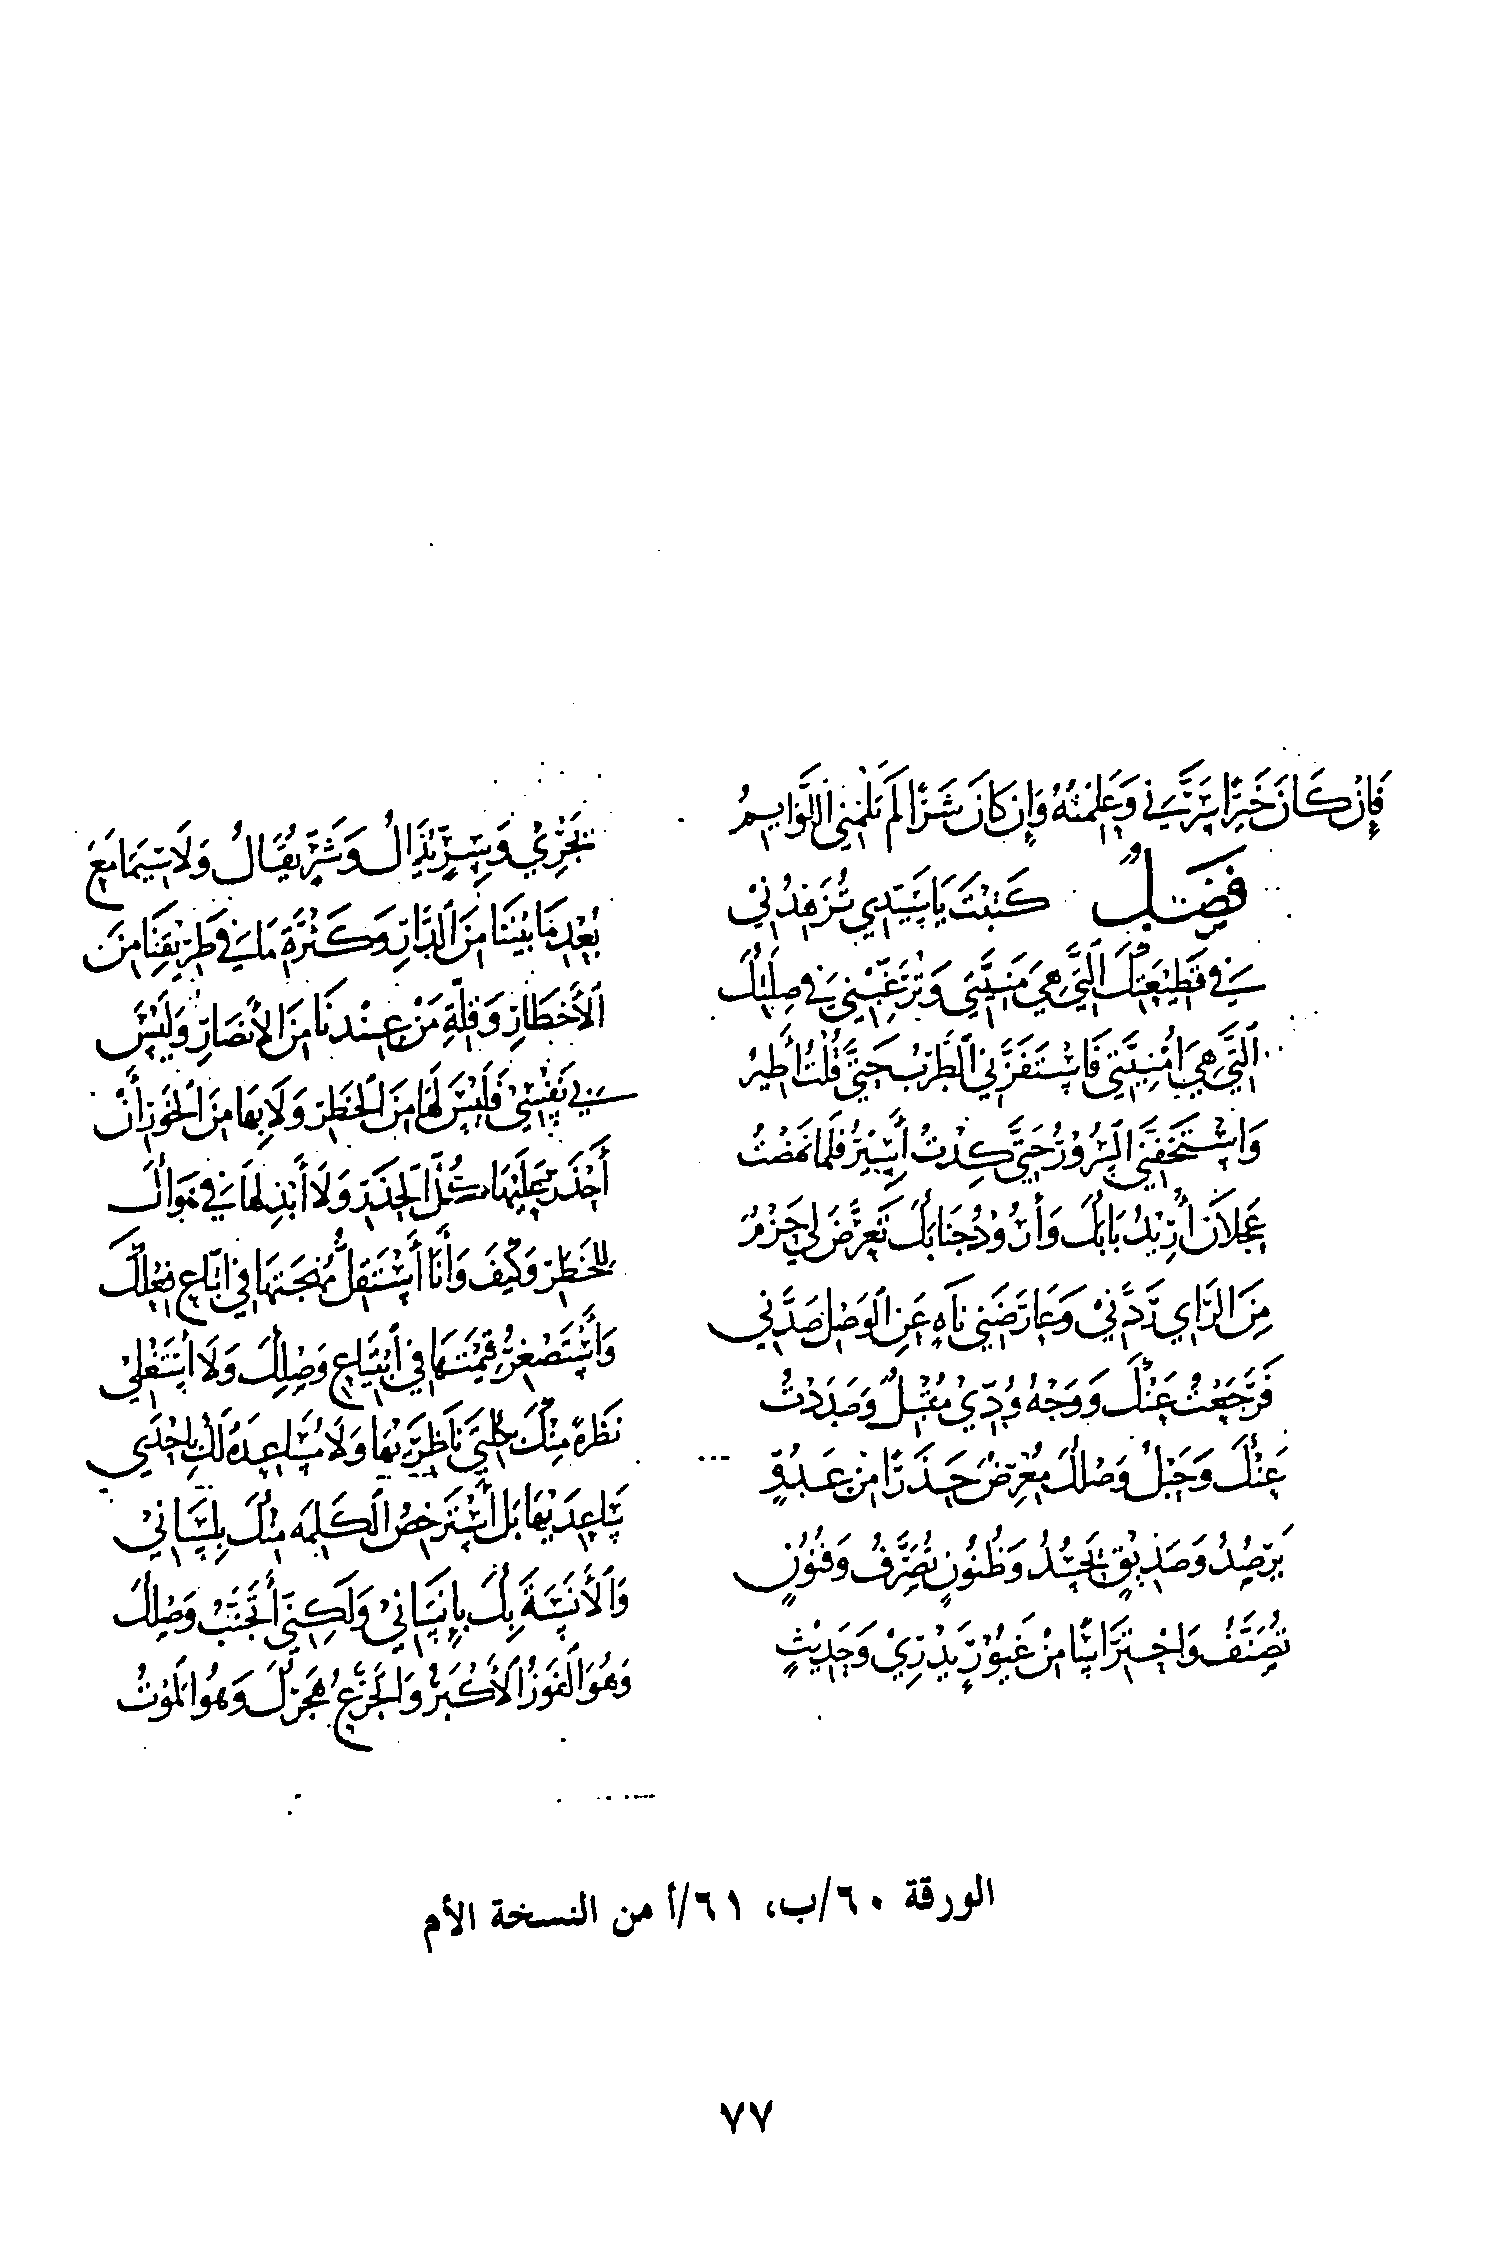 فَإِنْ كَانَ خَيْرًا سَرَّنِي وَعَلِمْتُهُ وَإِن كَانَ شَرًّا لَمْ تَلُمْنِي اللَّوَايِمُ
فَصْلٌ كَتَبْتَ يَا سَيِّدِي تُزَهِّدُنِي
فِي قَطِيعَتِكَ الَّتِي هِيَ مَنِيَّتِي وَتُرَغِّبُنِي فِي صِلَتِكَ
الَّتِي هِيَ أُمْنِيَّتِي فَاسْتَفَزَّنِي الطَّرَبُ حَتَّى قُلْتُ أَطِيرُ
وَاسْتَخَفَّنِي السُّرُورُ حَتَّى كِدْتُ أَسِيرُ فَلَمَّا نَهَضْتُ
عَجْلَانَ أُرِيدُ بَابَكَ وَأَرُودُ جَنَابَكَ تَعَرَّضَ لِي حَزْمٌ
مِنَ الرَّايِ رَدَّنِي وَعَارَضَنِي نَاهٍ عَنِ الوَصْلِ صَدَّنِي
فَرَجَعْتُ عَنْكَ وَوَجْهُ وُدِّي مُقْبِلٌ وَصَدَدْتُ
عَنْكَ وَحَبْلُ وَصْلِكَ مُعْرِضٌ حَذَرًا مِنْ عَدُوٍّ
يَرْصُدُ وَصَدِيقٍ يَحْسُدُ وَظُنُونٍ تُصَرَّفُ وَفُنُونٍ
تُصَنَّفُ وَاحْتِرَاسًا مِنْ غَيُورٍ يَدْرِي وَحَدِيثٍ
يَجْرِي وَسِرٍّ يُذَالُ وَشَرٍّ يُقَالُ وَلَا سِيَّمَا مَعَ
بُعْدِ مَا بَيْنَنَا مِنَ الدَّارِ وَكَثْرَةِ مَا فِي طَرِيقِنَا مِنَ
الأَخْطَارِ وَقِلَّةِ مَنْ عِنْدَنَا مِنَ الأَنْصَارِ وَلَيْسَ
فِي نَفْسِي فَلَيْسَ لَهَا مِنَ الخَطَرِ وَلَا بِهَا مِنَ الخَوَرِ أَنْ
أَحْذَرَ عَلَيْهَا كُلَّ الحَذَرِ وَلَا أَبْذِلَهَا فِي هَوَاكَ
لِلخَطَرِ وَكَيْفَ وَأَنَا أَسْتَقِلُّ مُهْجَتَهَا فِي اتِّبَاعِ فِعْلِكَ
وَأَسْتَصْغِرُ قِيمَتَهَا فِي ابْتِيَاعِ وَصْلِكَ وَلَا أَسْتَغْلِي
نَظْرَةً مِنْكَ بِمُقْلَتِي نَاظِرَةً بِهَا وَلَا مُسَاعِدَةً لَكَ بِإِحْدَى
سَاعِدَيَّ بِهَا بَلْ أَسْتَرْخِصُ الكَلِمَةَ مِنْكَ بِلِسَانِي
وَالأَنَسَةَ بِكَ بِإِنْسَانِي وَلَكِنِّي أَتَجَنَّبُ وَصْلَكَ
وَهُوَ الفَوْزُ الأَكْبَرُ وَالْجَرَعُ هَجْرَكَ وَهُوَ المَوْتُ
الورقة ٦٠/ب، ٦١/أ من النسخة الأم
٧٧